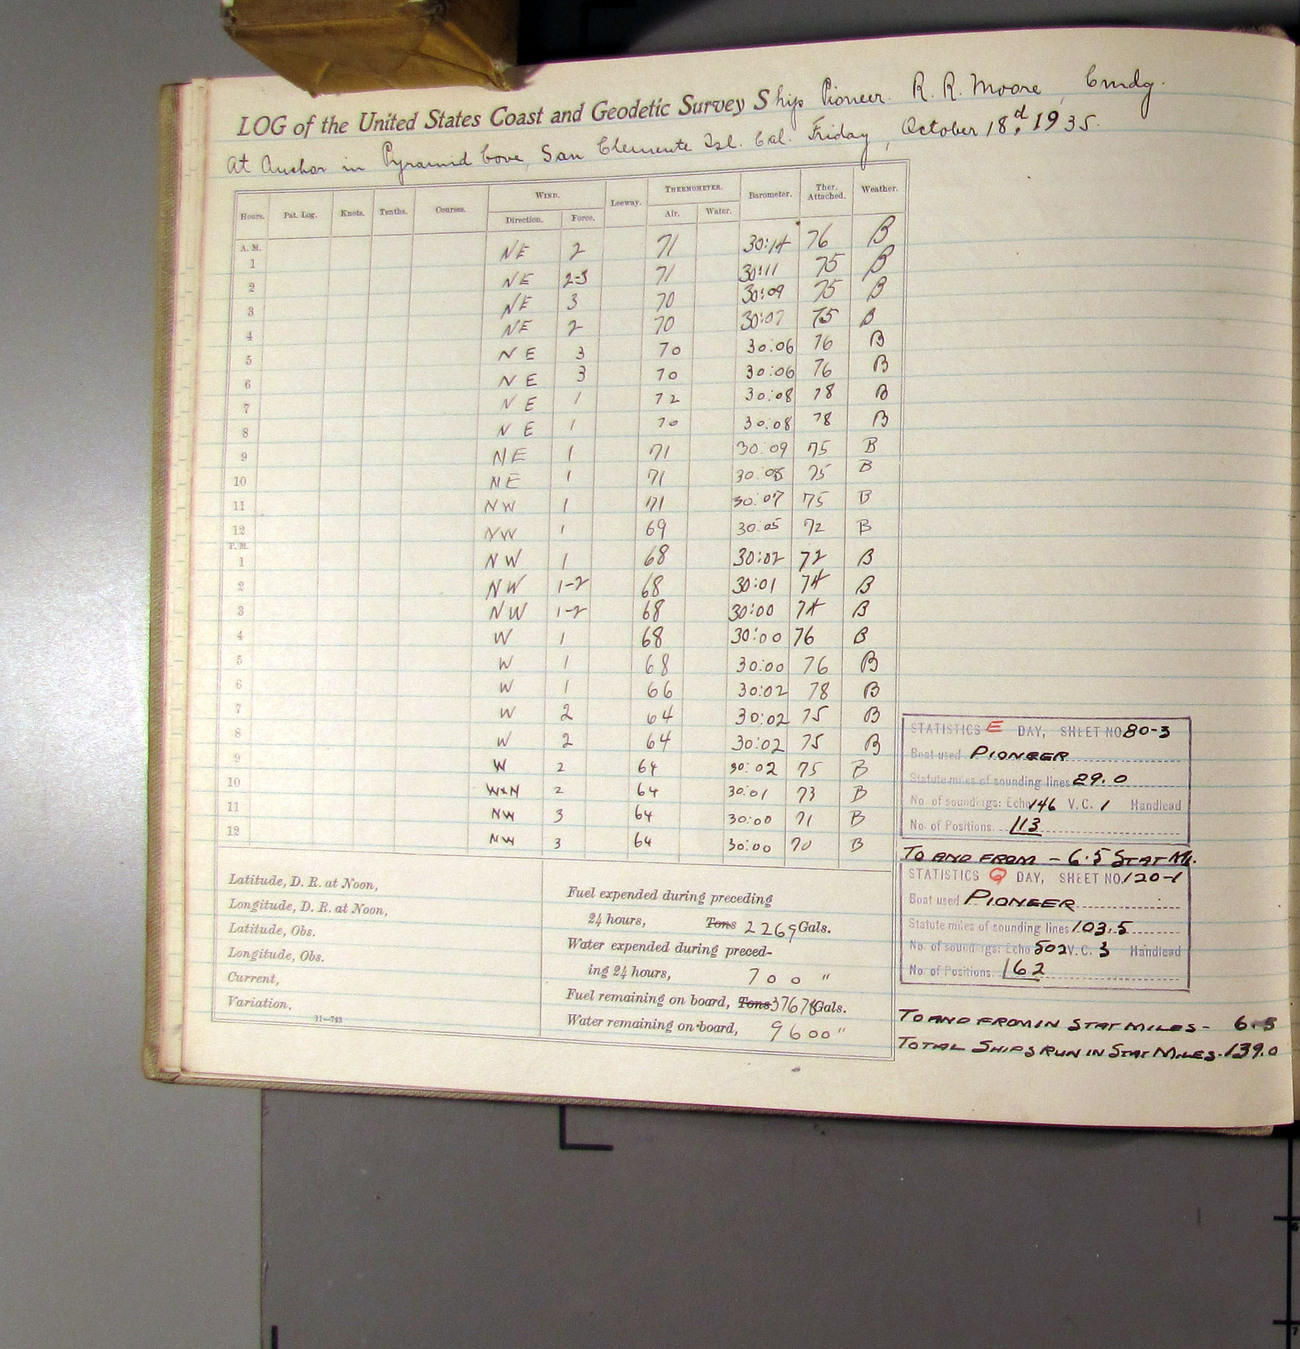 LOG of the United States Coast and Geodetic Survey Ship Pioneer. R. R. Moore, Cmdg.
At Anchor in Pyramid Cove, San Clemente Isl. Cal. Friday, October 18d, 1935.
Hours. Pat. Log. Knots. Tenths. Courses. WIND. Direction. Force. Leeway. THERMOMETER. Air. Water. Barometer. Ther. Attached. Weather.
A. M.
1 NE 2 71 30:14 76 B
2 NE 2-3 71 30:11 75 B
3 NE 3 70 30:09 75 B
4 NE 2 70 30:07 75 B
5 NE 3 70 30:06 76 B
6 NE 3 70 30:06 76 B
7 NE 1 72 30:08 78 B
8 NE 1 70 30:08 78 B
9 NE 1 71 30:09 75 B
10 NE 1 71 30:08 75 B
11 NW 1 71 30:07 75 B
12 NW 1 69 30.05 72 B
P. M.
1 NW 1 68 30:02 72 B
2 NW 1-2 68 30:01 74 B
3 NW 1-2 68 30:00 74 B
4 W 1 68 30:00 76 B
5 W 1 68 30:00 76 B
6 W 1 66 30:02 78 B
7 W 2 64 30:02 75 B
8 W 2 64 30:02 75 B
9 W 2 64 30:02 75 B
10 WxN 2 64 30:01 73 B
11 NW 3 64 30:00 71 B
12 NW 3 64 30:00 70 B
STATISTICS E DAY, SHEET NO. 80-3
Boat used PIONEER
Statute miles of sounding lines 29.0
No. of soundings: Echo 146 V.C. 1 Handlead
No. of Positions. 113
TO AND FROM - 6.5 STAT MI.
STATISTICS Q DAY, SHEET NO. 120-1
Boat used PIONEER
Statute miles of sounding lines 103.5
No. of soundings: Echo 502 V.C. 3 Handlead
No. of Positions. 162
TO AND FROM IN STAT MILES - 6.5
TOTAL SHIPS RUN IN STAT MILES. 139.0
Latitude, D. R. at Noon,
Longitude, D. R. at Noon,
Latitude, Obs.
Longitude, Obs.
Current,
Variation,
11—743
Fuel expended during preceding
24 hours, Tons 2269 Gals.
Water expended during preced-
ing 24 hours, 700 "
Fuel remaining on board, Tons 37678 Gals.
Water remaining on board, 9600 "